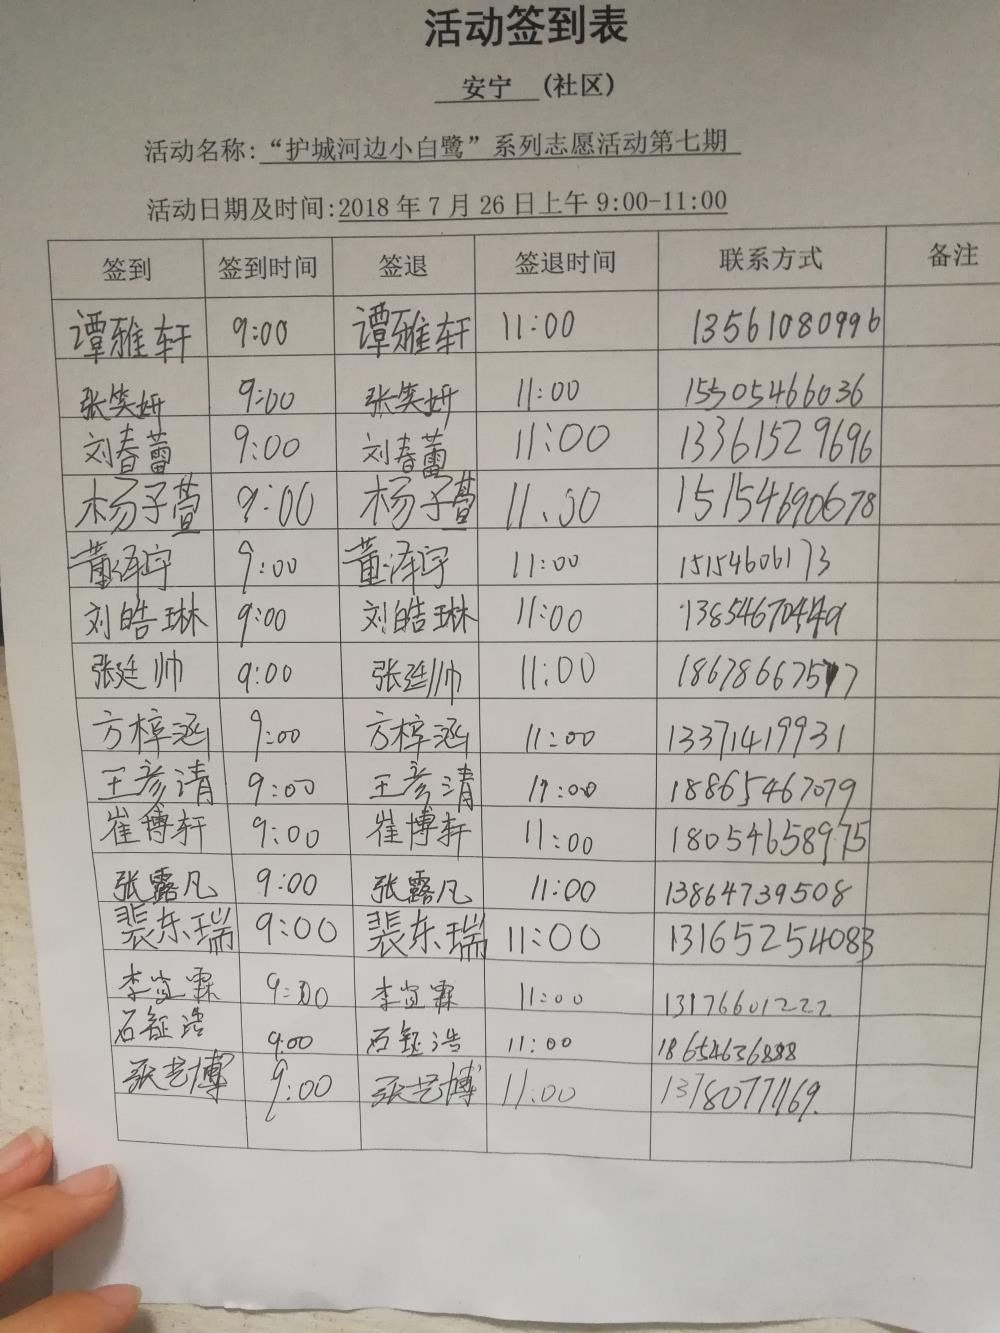 活动签到表
安宁 (社区)
活动名称:“护城河边小白鹭”系列志愿活动第七期
活动日期及时间:2018年7月26日上午9:00-11:00
签到 签到时间 签退 签退时间 联系方式 备注
谭雅轩 9:00 谭雅轩 11:00 13561080996
张笑妍 9:00 张笑妍 11:00 15305466036
刘春蕾 9:00 刘春蕾 11:00 13361529696
杨子萱 9:00 杨子萱 11:00 15154690678
董泽宇 9:00 董泽宇 11:00 15154606173
刘皓琳 9:00 刘皓琳 11:00 13854670449
张廷帅 9:00 张廷帅 11:00
方梓涵 9:00 方梓涵 11:00 13371419931
王彦清 9:00 王彦清 11:00 18865467079
崔博轩 9:00 崔博轩 11:00 18054658975
张露凡 9:00 张露凡 11:00 13864739508
裴东瑞 9:00 裴东瑞 11:00 13165254083
李宜霖 9:00 李宜霖 11:00 13176601222
石钰浩 9:00 石钰浩 11:00
张艺博 9:00 张艺博 11:00 13780771169.